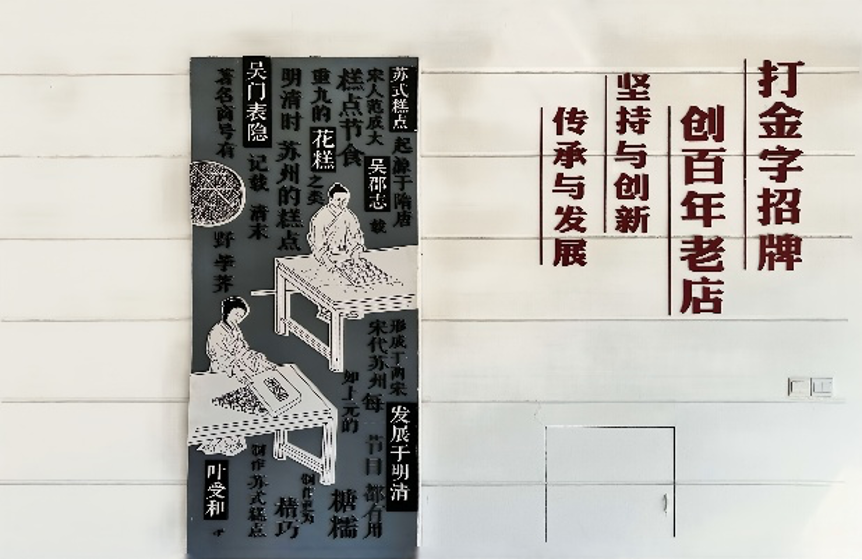 打金字招牌
创百年老店
坚持与创新
传承与发展
苏式糕点
起源于隋唐
形成于两宋
发展于明清
宋人范成大
吴郡志
载
宋代苏州每
节日都有用
糕点节食
如上元的
糖
糯
重九的
花糕
之类
明清时
苏州的糕点
制作更为
精巧
吴门表隐
记载
清末
制作苏式糕点
著名商号有
野荸荠
叶受和